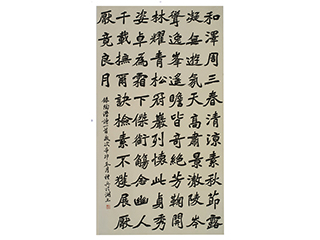 和澤周三春清涼素秋節露
凝無遊氛天高肅景澈陵岑
聳逸峯遙瞻皆奇絕芳鞠開
林耀青松冠巖列懷此貞秀
姿卓爲霜下傑銜觴念幽人
千載撫爾訣檢素不獲展厭
厭竟良月
陶潛詩一首歲次辛卯